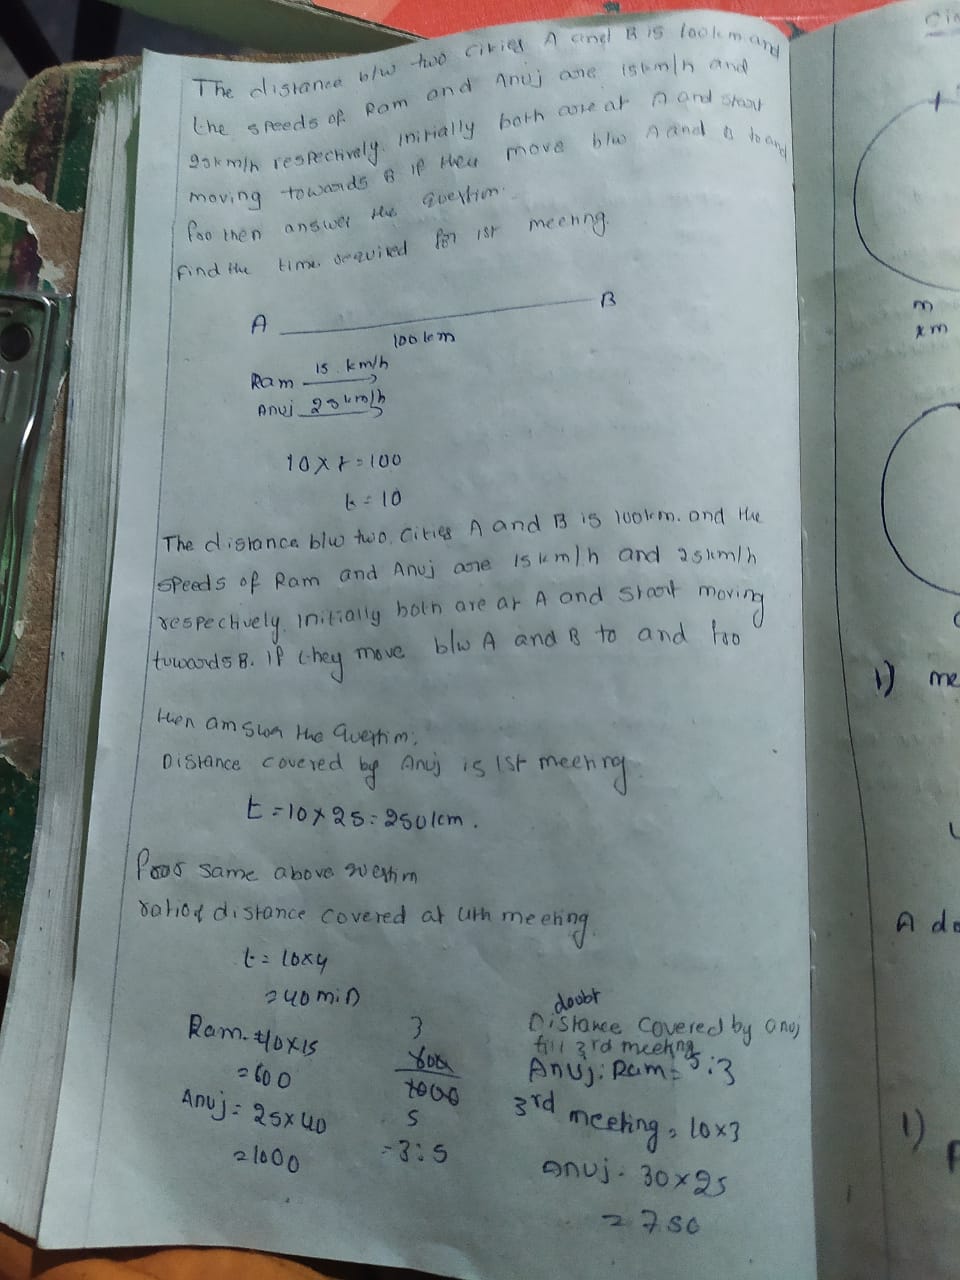 The distance b/w two cities A and B is 100km and
the speeds of Ram and Anuj are 15km/h and
25km/h respectively. Initially both are at A and start
moving towards B if they move b/w A and B to and
froo then answer the question.
Find the time required for 1st meeting.
A B
100km
Ram 15 km/h
Anuj 25km/h
10 x t = 100
t = 10
The distance b/w two cities A and B is 100km. and the
speeds of Ram and Anuj are 15km/h and 25km/h
respectively. Initially both are at A and start moving
towards B. If they move b/w A and B to and froo
then answer the Question;
Distance covered by Anuj is 1st meeting.
t = 10 x 25 = 250km.
same above question
ratio of distance covered at 4th meeting.
t = 10x4
= 40 min
Ram. 40x15
= 600
Anuj = 25x40
= 1000
3
600
1000
5
= 3:5
doubt
Distance covered by anuj
till 3rd meeting
Anuj: Ram = 5:3
3rd meeting = 10x3
Anuj = 30x25
= 750
Cir
m
xm
1) me
A do
1)